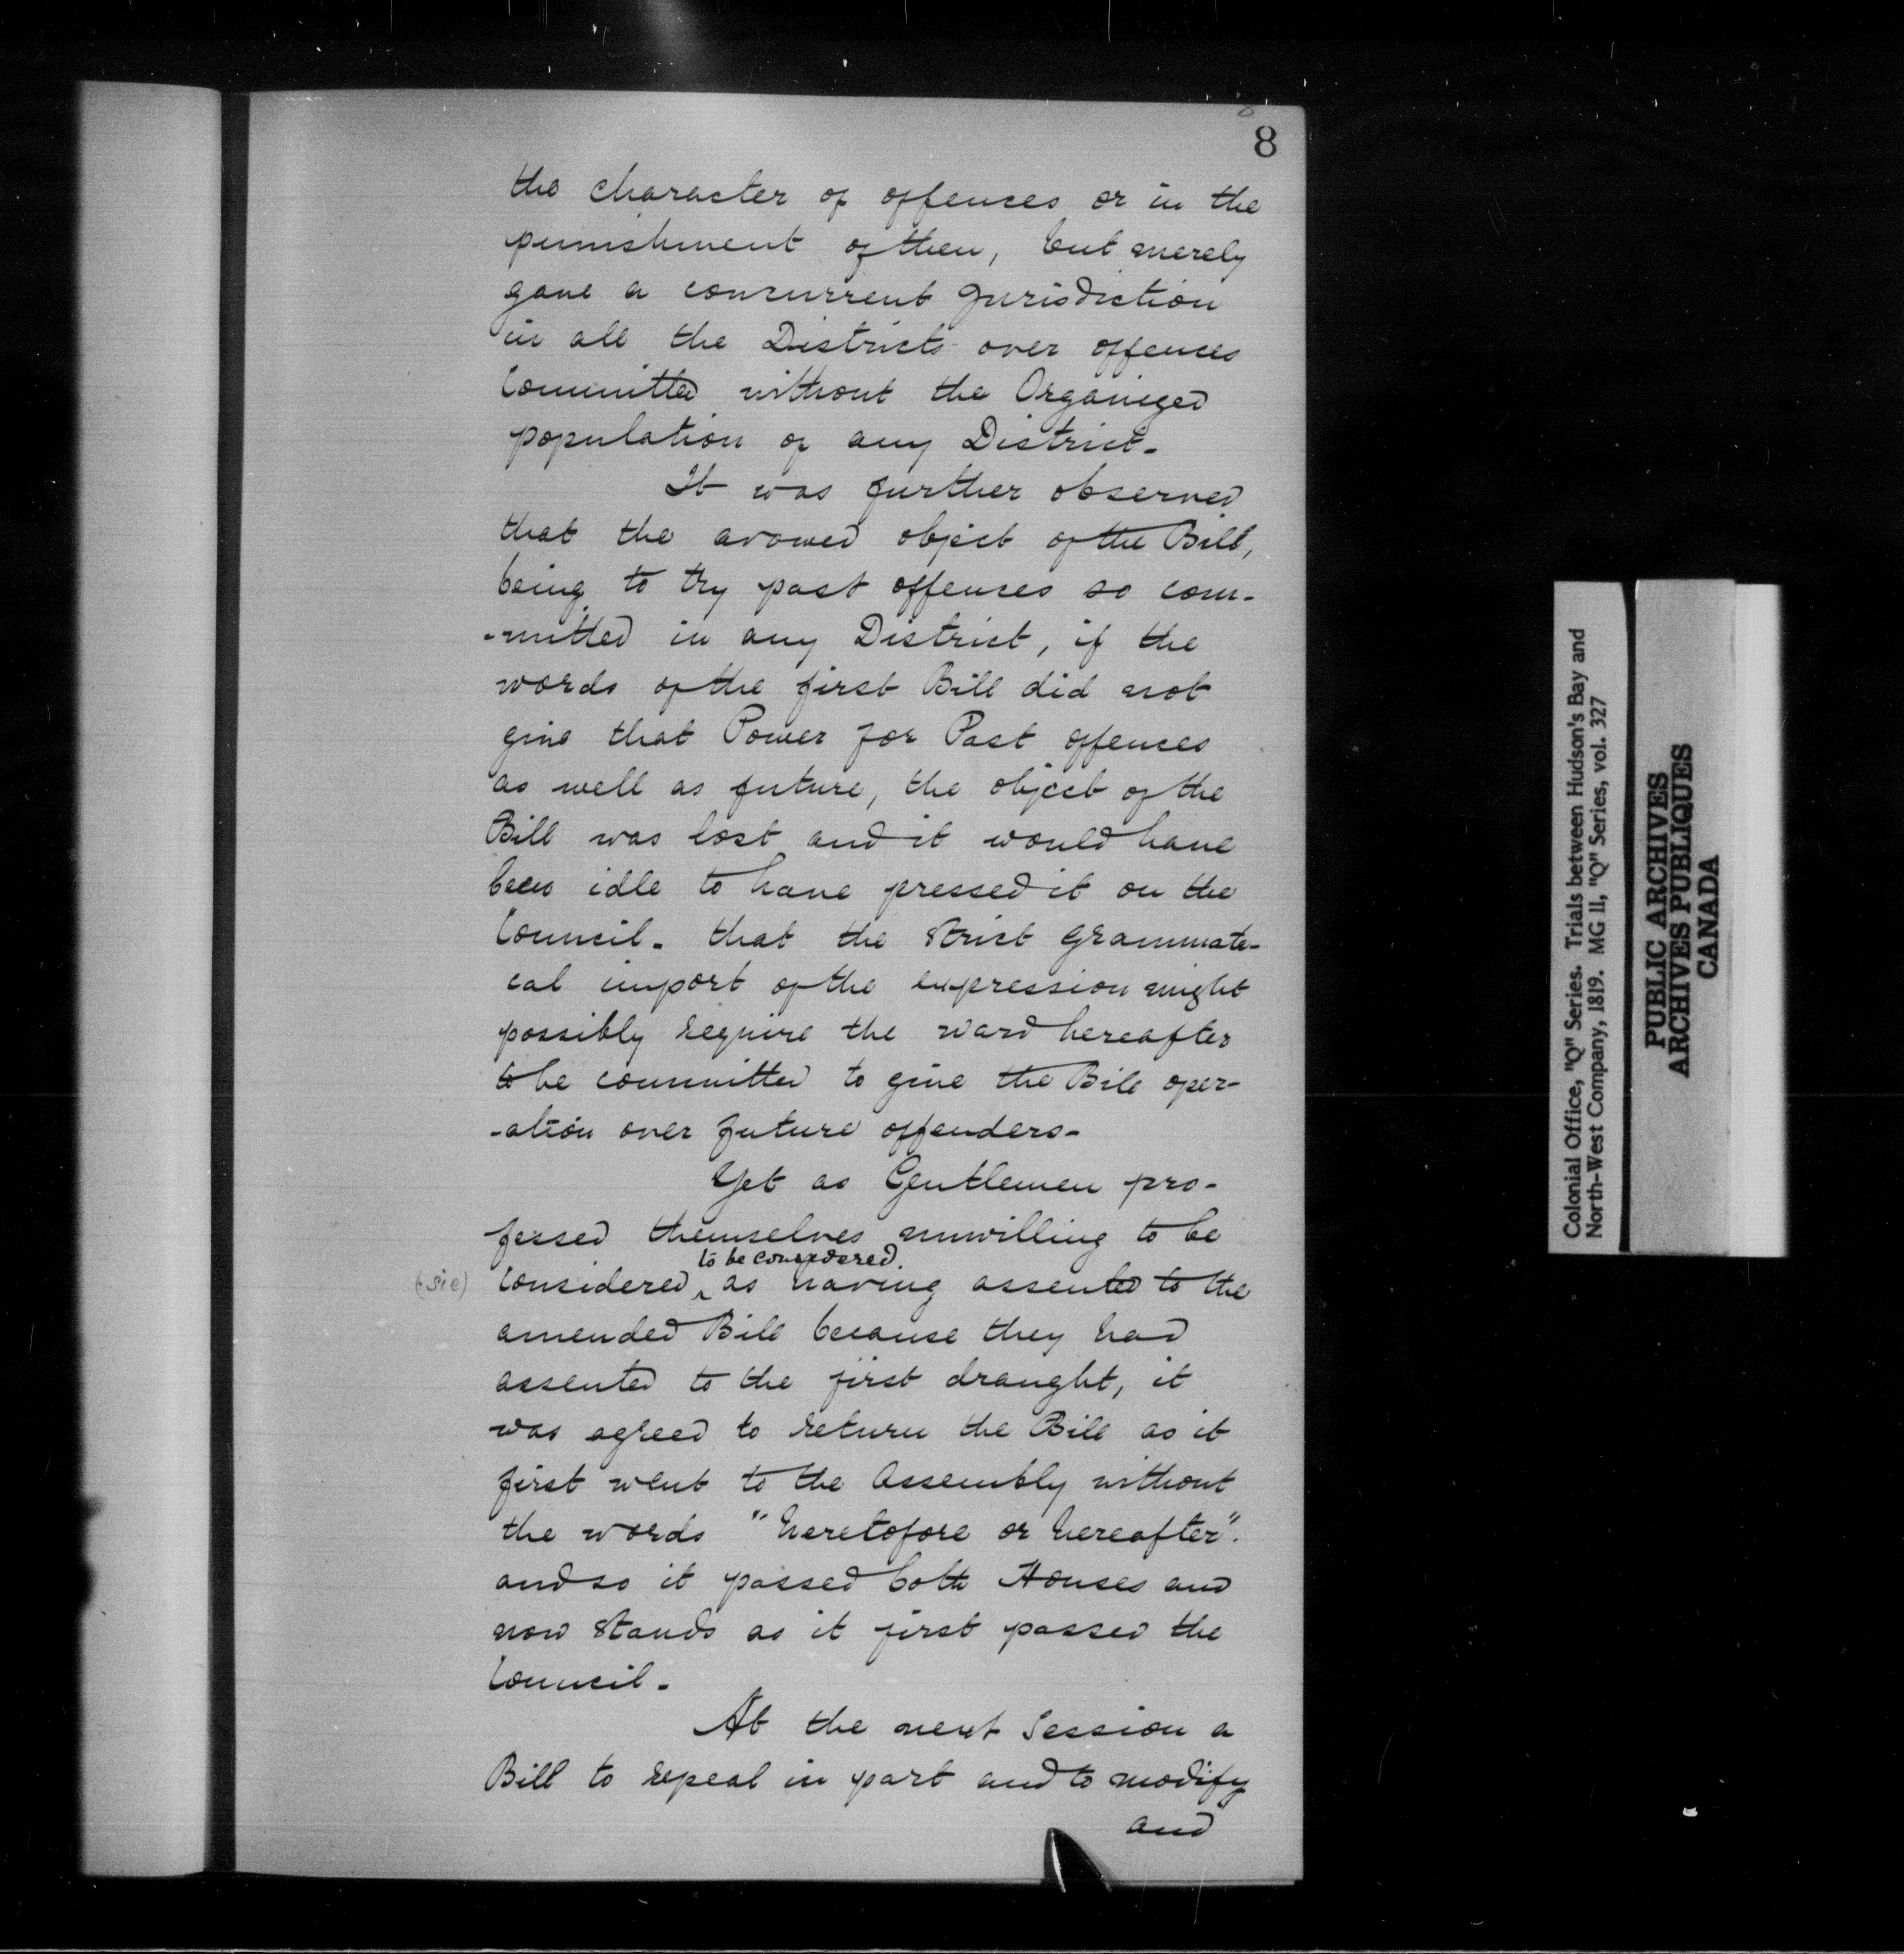 8
the character of offences or in the
punishment of them, but merely
gave a concurrent Jurisdiction
in all the Districts over offences
Committed without the Organized
population of any District.
It was further observed
that the avowed object of the Bill,
being to try past offences so com-
-mitted in any District, if the
words of the first Bill did not
give that Power for Past offences
as well as future, the object of the
Bill was lost and it would have
been idle to have pressed it on the
Council. that the strict grammati-
cal import of the expression might
possibly require the word hereafter
to be committed to give the Bill oper-
-ation over future offenders-
Yet as Gentlemen pro-
fessed themselves unwilling to be
to be considered.
(sic) Considered, as having assented to the
amended Bill because they had
assented to the first draught, it
was agreed to return the Bill as it
first went to the Assembly without
the words "heretofore or hereafter".
and so it passed both Houses and
now stands as it first passed the
Council.
At the next Session a
Bill to repeal in part and to modify
and
Colonial Office, "Q" Series. Trials between Hudson's Bay and
North-West Company, 1819. MG 11, "Q" Series, vol. 327
PUBLIC ARCHIVES
ARCHIVES PUBLIQUES
CANADA